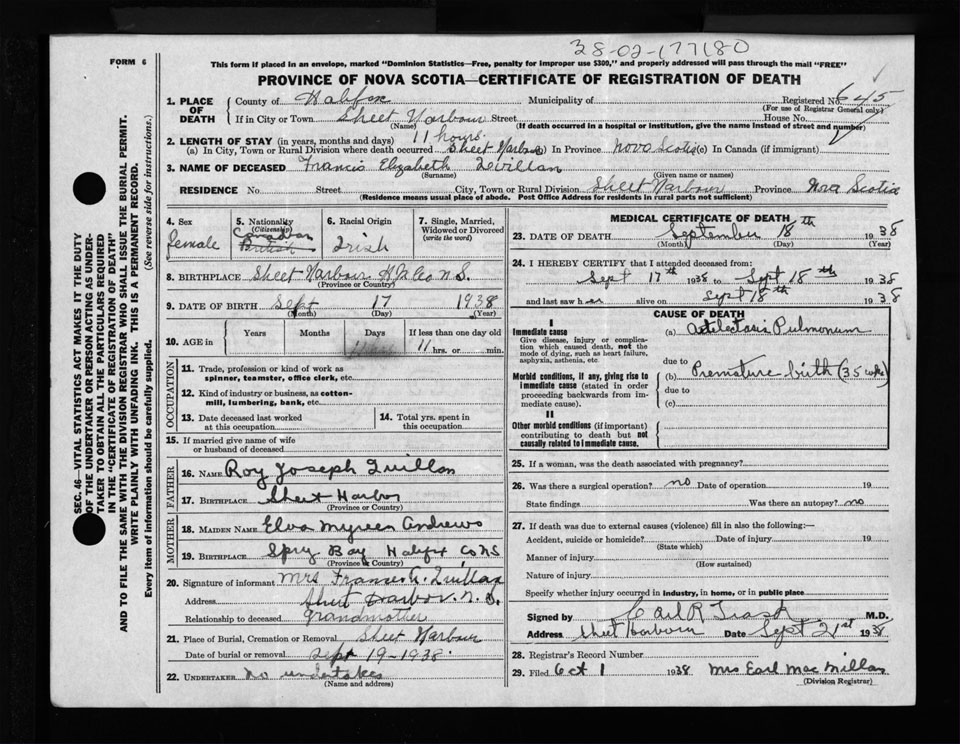 38-02-177180
FORM 6
This form if placed in an envelope, marked "Dominion Statistics—Free, penalty for improper use $300," and properly addressed will pass through the mail "FREE"
PROVINCE OF NOVA SCOTIA—CERTIFICATE OF REGISTRATION OF DEATH
SEC. 46—VITAL STATISTICS ACT MAKES IT THE DUTY
OF THE UNDERTAKER OR PERSON ACTING AS UNDER-
TAKER TO OBTAIN ALL THE PARTICULARS REQUIRED
IN THE "CERTIFICATE OF REGISTRATION OF DEATH"
AND TO FILE THE SAME WITH THE DIVISION REGISTRAR WHO SHALL ISSUE THE BURIAL PERMIT.
WRITE PLAINLY WITH UNFADING INK. THIS IS A PERMANENT RECORD.
Every item of information should be carefully supplied. (See reverse side for instructions.)
1. PLACE OF DEATH
County of Halifax Municipality of Registered No. 645
(For use of Registrar General only)
If in City or Town Sheet Harbour Street House No.
(Name) (If death occurred in a hospital or institution, give the name instead of street and number)
2. LENGTH OF STAY (in years, months and days) 11 hours.
(a) In City, Town or Rural Division where death occurred Sheet Harbour In Province Nova Scotia (c) In Canada (if immigrant)
3. NAME OF DECEASED Francis Elizabeth Quillan
(Surname) (Given name or names)
RESIDENCE No. Street City, Town or Rural Division Sheet Harbour Province Nova Scotia
(Residence means usual place of abode. Post Office Address for residents in rural parts not sufficient)
4. Sex
female
5. Nationality
(Citizenship)
Canadian
British
6. Racial Origin
Irish
7. Single, Married,
Widowed or Divorced
(write the word)
8. BIRTHPLACE Sheet Harbour Hfx Co N.S.
(Province or Country)
9. DATE OF BIRTH Sept 17 1938
(Month) (Day) (Year)
10. AGE in Years Months Days If less than one day old
11 hrs. or min.
OCCUPATION
11. Trade, profession or kind of work as
spinner, teamster, office clerk, etc.
12. Kind of industry or business, as cotton-
mill, lumbering, bank, etc.
13. Date deceased last worked
at this occupation
14. Total yrs. spent in
this occupation
15. If married give name of wife
or husband of deceased
FATHER
16. NAME Roy Joseph Quillan
17. BIRTHPLACE Sheet Harbor
(Province or Country)
MOTHER
18. MAIDEN NAME Elva Myreen Andrews
19. BIRTHPLACE Spry Bay Halifax Co NS
(Province or Country)
20. Signature of informant Mrs Frances A. Quillan
Address Sheet Harbor. N. S.
Relationship to deceased grandmother
21. Place of Burial, Cremation or Removal Sheet Harbour
Date of burial or removal Sept 19-1938.
22. UNDERTAKER No undertaker
(Name and address)
MEDICAL CERTIFICATE OF DEATH
23. DATE OF DEATH September 18th 1938
(Month) (Day) (Year)
24. I HEREBY CERTIFY that I attended deceased from:
Sept 17th 1938 to Sept 18th 1938
and last saw her alive on Sept 18th 1938
CAUSE OF DEATH
I
Immediate cause
Give disease, injury or complica-
tion which caused death, not the
mode of dying, such as heart failure,
asphyxia, asthenia, etc.
(a) Atelectasis Pulmonum
due to
Morbid conditions, if any, giving rise to
immediate cause (stated in order
proceeding backwards from im-
mediate cause).
(b) Premature birth (35 wks)
due to
(c)
II
Other morbid conditions (if important)
contributing to death but not
causally related to immediate cause.
25. If a woman, was the death associated with pregnancy?
26. Was there a surgical operation? no Date of operation 19
State findings Was there an autopsy? no
27. If death was due to external causes (violence) fill in also the following:—
Accident, suicide or homicide? Date of injury 19
(State which)
Manner of injury
(How sustained)
Nature of injury
Specify whether injury occurred in industry, in home, or in public place
Signed by Carl R Trask M.D.
Address Sheet Harbour Date Sept 21st 1938
28. Registrar's Record Number
29. Filed Oct 1 1938 Mrs Earl MacMillan
(Division Registrar)